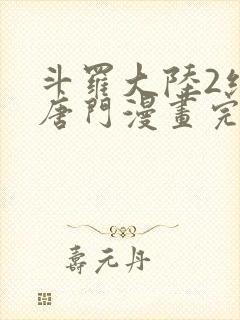 斗羅大陸2
唐門漫畫完
壽元丹